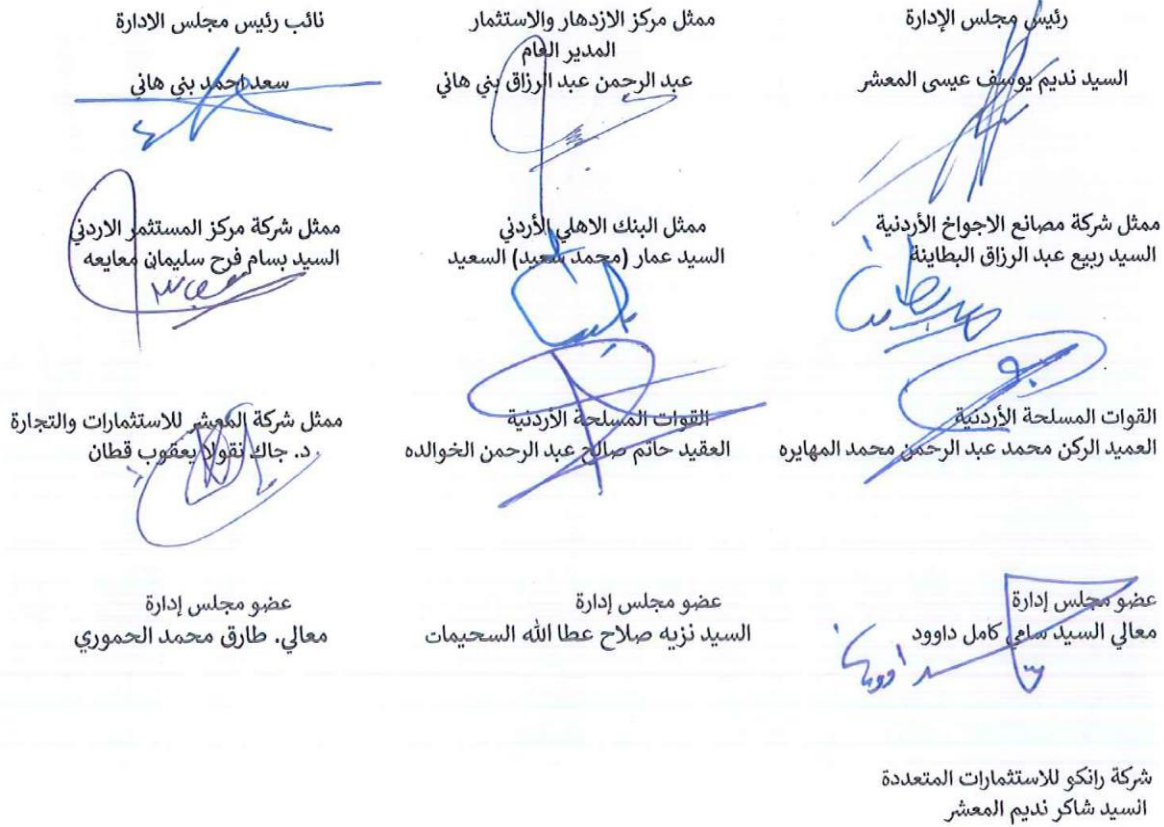 رئيس مجلس الإدارة
السيد نديم يوسف عيسى المعشر
ممثل مركز الازدهار والاستثمار
المدير العام
عبد الرحمن عبد الرزاق بني هاني
نائب رئيس مجلس الادارة
سعد احمد بني هاني
ممثل شركة مصانع الاجواخ الأردنية
السيد ربيع عبد الرزاق البطاينة
ممثل البنك الاهلي الأردني
السيد عمار (محمد سعيد) السعيد
ممثل شركة مركز المستثمر الاردني
السيد بسام فرح سليمان معايعه
القوات المسلحة الأردنية
العميد الركن محمد عبد الرحمن محمد المهايره
القوات المسلحة الأردنية
العقيد حاتم صالح عبد الرحمن الخوالده
ممثل شركة المعشر للاستثمارات والتجارة
د. جاك نقولا يعقوب قطان
عضو مجلس إدارة
معالي السيد سامي كامل داوود
عضو مجلس إدارة
السيد نزيه صلاح عطا الله السحيمات
عضو مجلس إدارة
معالي. طارق محمد الحموري
شركة رانكو للاستثمارات المتعددة
السيد شاكر نديم المعشر